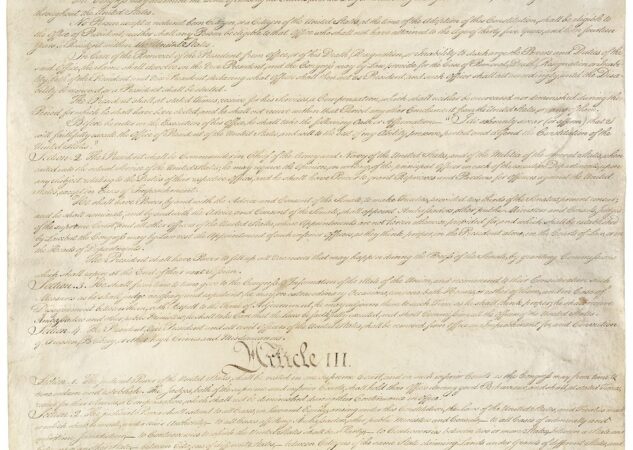 throughout the United States.
No Person except a natural born Citizen, or a Citizen of the United States, at the time of the Adoption of this Constitution, shall be eligible to
the Office of President; neither shall any Person be eligible to that Office who shall not have attained to the Age of thirty five Years, and been fourteen
Years a Resident within the United States.
In Case of the Removal of the President from Office, or of his Death, Resignation, or Inability to discharge the Powers and Duties of the
said Office, the same shall devolve on the Vice President, and the Congress may by Law provide for the Case of Removal, Death, Resignation or Inabi-
lity, both of the President and Vice President, declaring what Officer shall then act as President, and such Officer shall act accordingly, until the Disa-
bility be removed, or a President shall be elected.
The President shall, at stated Times, receive for his Services, a Compensation, which shall neither be encreased nor diminished during the
Period for which he shall have been elected, and he shall not receive within that Period any other Emolument from the United States, or any of them.
Before he enter on the Execution of his Office, he shall take the following Oath or Affirmation: "I do solemnly swear (or affirm) that I
will faithfully execute the Office of President of the United States, and will to the best of my Ability, preserve, protect and defend the Constitution of the
United States."
Section. 2. The President shall be Commander in Chief of the Army and Navy of the United States, and of the Militia of the several States, when
called into the actual Service of the United States; he may require the Opinion, in writing, of the principal Officer in each of the executive Departments, upon
any Subject relating to the Duties of their respective Offices, and he shall have Power to grant Reprieves and Pardons for Offences against the United
States, except in Cases of Impeachment.
He shall have Power, by and with the Advice and Consent of the Senate, to make Treaties, provided two thirds of the Senators present concur;
and he shall nominate, and by and with the Advice and Consent of the Senate, shall appoint Ambassadors, other public Ministers and Consuls, Judges
of the supreme Court, and all other Officers of the United States, whose Appointments are not herein otherwise provided for, and which shall be established
by Law: but the Congress may by Law vest the Appointment of such inferior Officers, as they think proper, in the President alone, in the Courts of Law, or in
the Heads of Departments.
The President shall have Power to fill up all Vacancies that may happen during the Recess of the Senate, by granting Commissions
which shall expire at the End of their next Session.
Section. 3. He shall from time to time give to the Congress Information of the State of the Union, and recommend to their Consideration such
Measures as he shall judge necessary and expedient; he may, on extraordinary Occasions, convene both Houses, or either of them, and in Case of
Disagreement between them, with Respect to the Time of Adjournment, he may adjourn them to such Time as he shall think proper; he shall receive
Ambassadors and other public Ministers; he shall take Care that the Laws be faithfully executed, and shall Commission all the Officers of the United States.
Section. 4. The President, Vice President and all civil Officers of the United States, shall be removed from Office on Impeachment for, and Conviction
of, Treason, Bribery, or other high Crimes and Misdemeanors.
Article III.
Section. 1. The judicial Power of the United States, shall be vested in one supreme Court, and in such inferior Courts as the Congress may from time to
time ordain and establish. The Judges, both of the supreme and inferior Courts, shall hold their Offices during good Behaviour, and shall, at stated Times,
receive for their Services, a Compensation, which shall not be diminished during their Continuance in Office.
Section. 2. The judicial Power shall extend to all Cases, in Law and Equity, arising under this Constitution, the Laws of the United States, and Treaties made,
or which shall be made, under their Authority;—to all Cases affecting Ambassadors, other public Ministers and Consuls;—to all Cases of admiralty and
maritime Jurisdiction;—to Controversies to which the United States shall be a Party;—to Controversies between two or more States;—between a State and
Citizens of another State;—between Citizens of different States,—between Citizens of the same State claiming Lands under Grants of different States, and